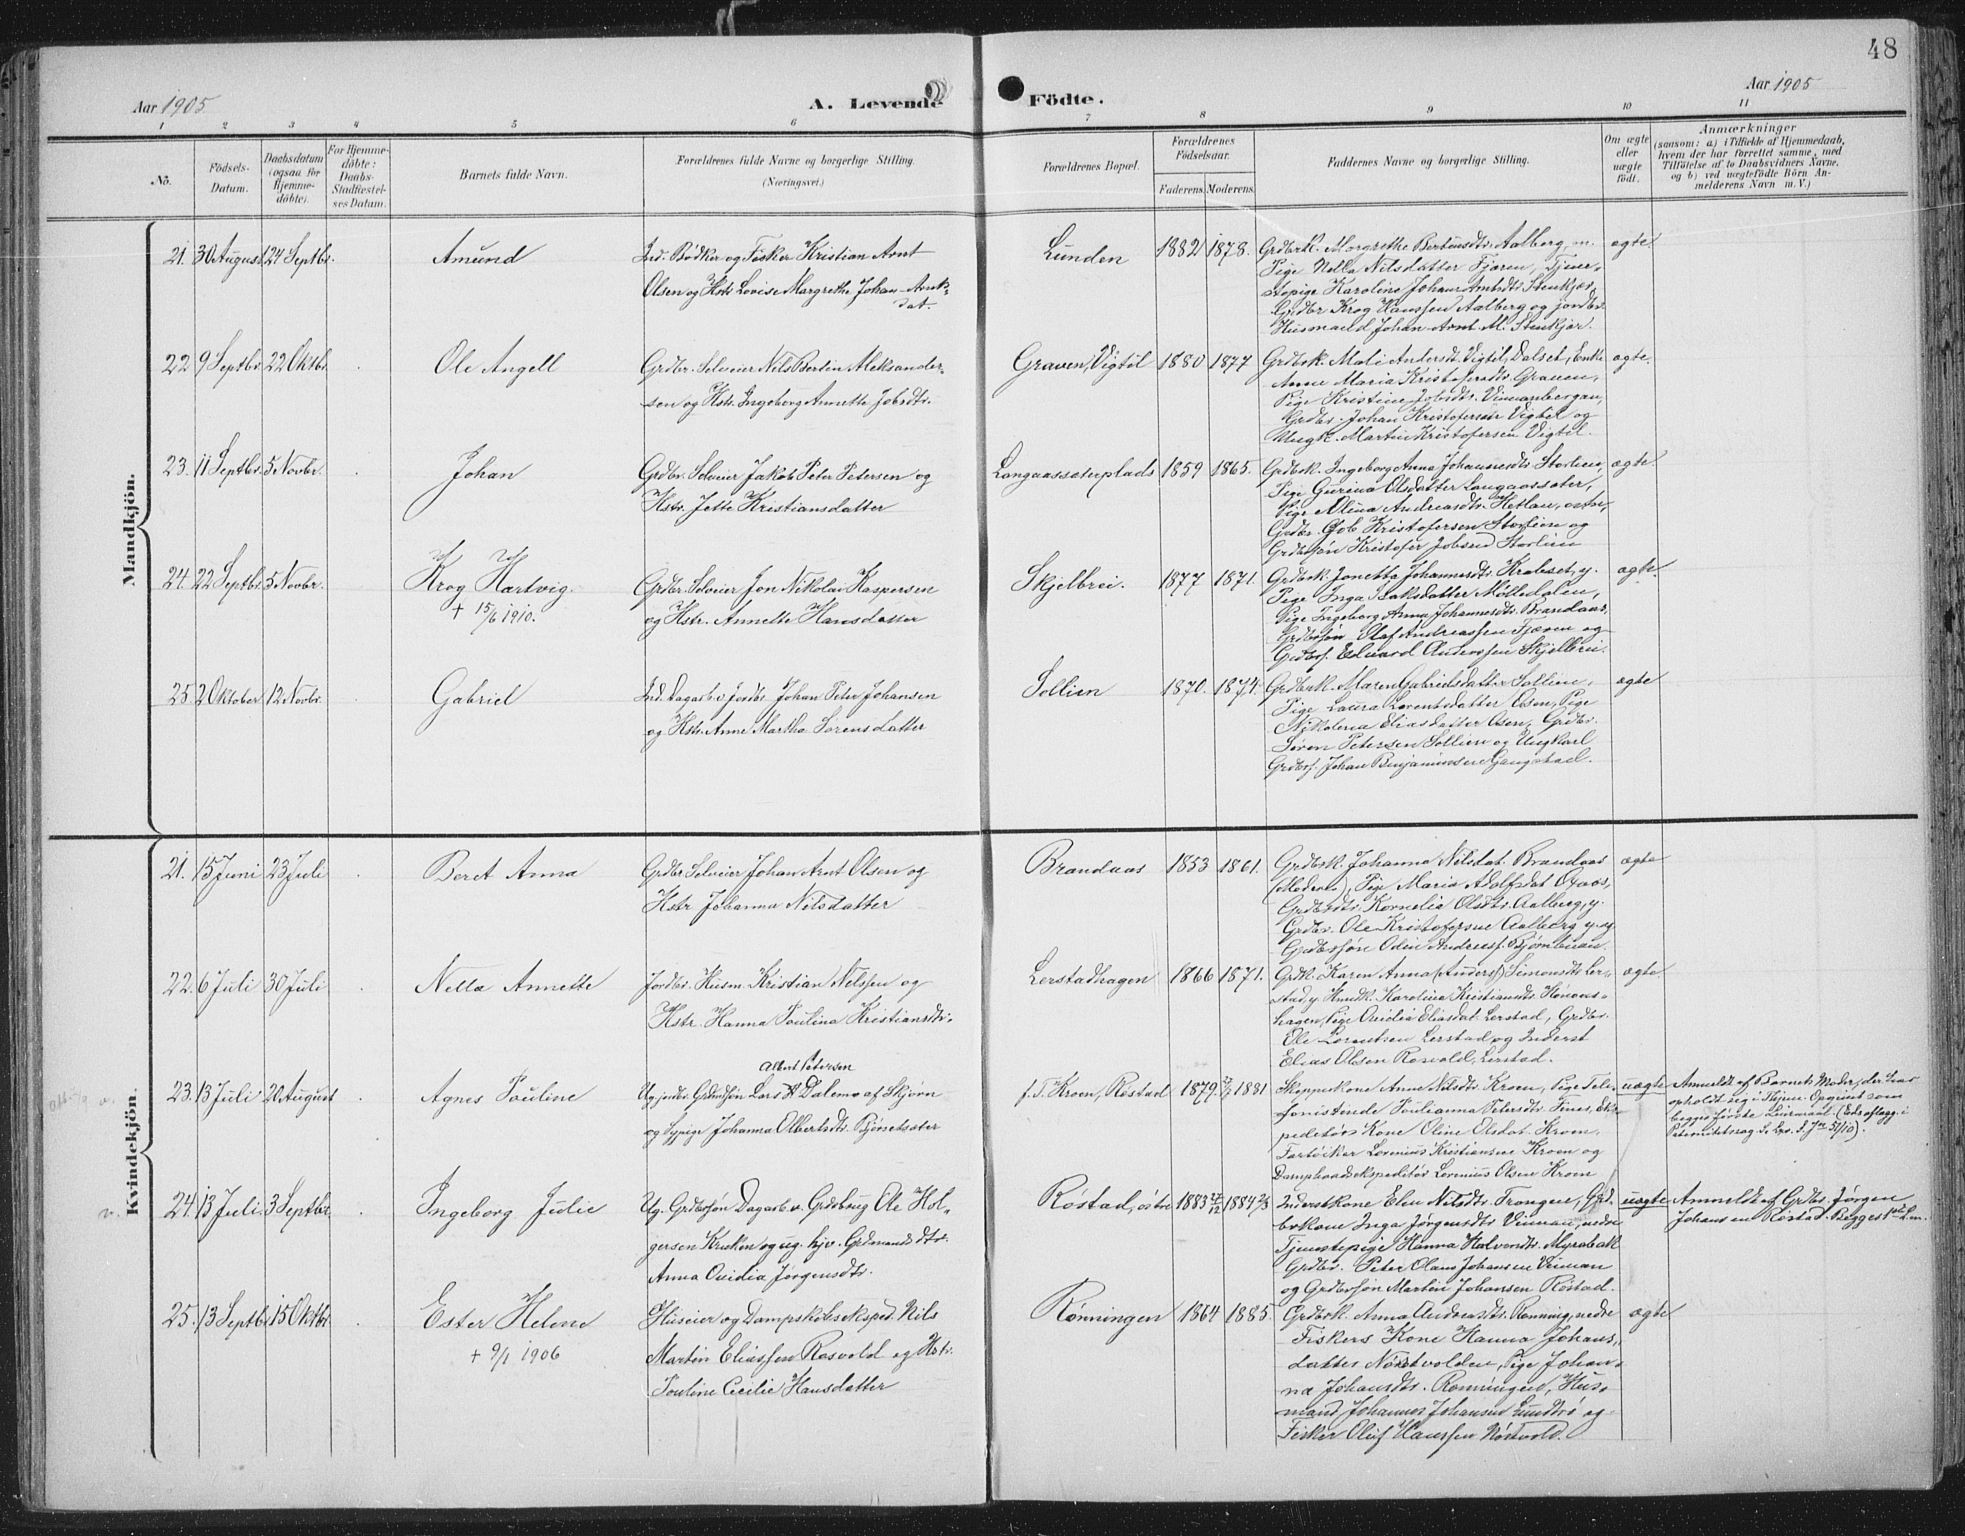 48
Aar 1905
A. Levende Födte.
Aar 1905
1 2 3 4 5 6 7 8 9 10 11
No.
Födsels-Datum.
Daabsdatum (ogsaa for Hjemme-döbte).
For Hjemme-döbte: Daabs-Stadfæstel-ses Datum.
Barnets fulde Navn.
Forældrenes fulde Navne og borgerlige Stilling.
(Næringsvei.)
Forældrenes Bopæl.
Forældrenes Födselsaar.
Faderens. Moderens.
Faddernes Navne og borgerlige Stilling.
Om ægte eller uægte födt.
Anmærkninger
(saasom: a) i Tilfælde af Hjemmedaab,
hvem der har forrettet samme, med
Tilföielse af to Daabsvidners Navne,
og b) ved uægtefödte Börn An-
melderens Navn m. V.)
Mandkjön.
21. 30 August 24 Septbr. Amund
Ind. Bødker og Fisker Kristian Arnt
Olsen og Hstr. Lovise Margrethe Johan-Arnts-
dat.
Lunden 1882 1878.
Grdbrk. Margrethe Berntsdtr. Aalberg, n.
Pige Nella Nilsdatter Fjæren, Tjene-
stepige Karoline Johan Arntsdtr. Stenkjær,
Grdbr Krog Hanssen Aalberg og jordbr.
Husmand Johan Arnt M. Stenkjær.
ægte.
22 9 Septbr. 22 Oktbr. Ole Angell
Grdbr. Selveier Nils Bertin Aleksander-
sen og Hstr. Ingeborg Annette Jobsdtr.
Graven, Vigtil 1880 1877
Grdbrk. Mali Andersdt. Vigtil, Dalset, Enke
Anne Maria Kristofersdtr. Graven,
Pige Kristine Jobsdtr. Vinnanbergan,
Grdbr. Johan Kristofersen Vigtil og
Ungk. Martin Kristofersen Vigtil.
ægte.
23. 11 Septbr. 5 Novbr. Johan
Grdbr. Selveier Jakob Peter Petersen og
Hstr. Jette Kristiansdatter
Langaassæterplads 1859 1865.
Grdbrk. Ingeborg Anna Johannesdtr. Storlien,
Pige Gurina Olsdatter Langaassæter,
Pige Alina Andreasdtr. Hetlan, østre,
Grdbr. Job Kristofersen Storlien og
Grdbrsøn Kristofer Jobsen Storlien
ægte.
24. 22 Septbr. 5 Novbr. Krog Hartvig.
+ 15/6 1910.
Grdbr. Selveier Jon Nikolai Kaspersen
og Hstr. Annette Hansdatter
Skjelbrei. 1877 1871.
Grdbrk. Jonetta Johannesdtr. Krabset, y.
Pige Inga Isaksdatter Mølledalen,
Pige Ingeborg Anna Johannesdtr. Brandaas,
Grdbrsøn Olaf Andreassen Fjæren og
Grdbrs. Edvard Anderssen Skjelbrei.
ægte.
25 2 Oktober 12 Novbr Gabriel
Ind. Dagarb. v. Jordbr. Johan Peter Johansen
og Hstr. Anne Martha Sørensdatter
Sollien 1870. 1874.
Grdbrk. Maren Gabrielsdatter Sollien,
Pige Laura Lorentsdatter Osen, Pige
Nikolena Eliasdatter Osen, Grdbr.
Søren Petersen Sollien og Ungkarl
Grdbrs. Johan Benjaminsen Gangstad.
ægte
Kvindekjön.
21. 15 Juni 23 Juli Beret Anna
Grdbr. Selveier Johan Arnt Olsen og
Hstr. Johanna Nilsdatter
Brandaas 1853 1861.
Grdbrk. Johanna Nilsdat. Brandaas
(Moderen), Pige Maria Adolfsdat.
Grdbrdtr. Kornelia Olsdtr. Aalberg, y.
Grdbr. Ole Kristofersen Aalberg y. og
Grdbrsøn Odin Andreass. Bjørnbuan
ægte
22. 6 Juli 30 Juli Nella Annette
Jordbr. Husm. Kristian Nilssen og
Hstr. Hanna Poulina Kristiansdtr.
Lerstadhagen 1866 1871.
Grdbk. Karen Anna (Anders) Simonsdtr. Ler-
stad, y. Hmdk. Karolina Kristiansdtr.
hagen, Pige Ovidia Eliasdat. Lerstad, Grdbr.
Ole Lorentsen Lerstad og Inderst
Elias Olsen Rosvold, Lerstad.
ægte
23. 13 Juli 20 August Agnes Pouline
Albert Petersen
Ug. jorder Grdmdsøn Lars A Dalemo af Skjørn
og Sypige Johanna Olbertsdtr. Bjørsetsæter
f. T. Kroen, Røstad 1879. 1881
Skippekone Anne Nilsdtr. Kroen, Pige Tele-
fonistinde Poulianna Petersdtr. Fines, Eks-
peditørs Kone Oline Olsdat. Kroen,
Fartøieier Lorenius Kristiansen Kroen og
Dampbaadsekspeditør Lorenius Olsen Kroen
uægte
Anmeldt af Barnets Moder, der har
opholdt sig i Skjørn. Opgivet som
begges første Leiermaal. (Eds aflægg. i
Paternitetssag se
24. 13 Juli. 3 Septbr. Ingeborg Julie
Ug. Grdbrsøn Dagarb. v. Grdsbrug Ole Hol-
gersen Krinken og ug. hjv. Grdmands dtr.
Anna Ovidia Jørgensdtr.
Røstad, østre 1883 1884
Inderstkone Elen Nilsdtr. Trongen, Grd-
brkone Inga Jørgensdtr. Vinnan, nedre
Tjenestepige Hanna Halvorsdtr. Myrabak
Grdbr. Peter Olaus Johansen Vinnan
og Grdbrsøn Martin Johansen Røstad.
uægte
Anmeldt af Grdbr. Jørgen
Johansen Røstad. Begges 1ste Lm.
25. 13 Septbr 15 Oktbr. Ester Helene
+ 9/1 1906
Huseier og Dampskibseksped. Nils
Martin Eliassen Rosvold og Hstr.
Pouline Cecilie Hansdatter
Rønningen 1864 1885.
Grdbrk. Anna Andreasdtr. Rønning, nedre
Fiskers Kone Hanna Johans-
datter Nøstvolden, Pige Johan-
na Johansdtr. Rønningen, Hus-
mand Johannes Johansen Sundsrø og
Fisker Oluf Hanssen Nøstvold.
ægte